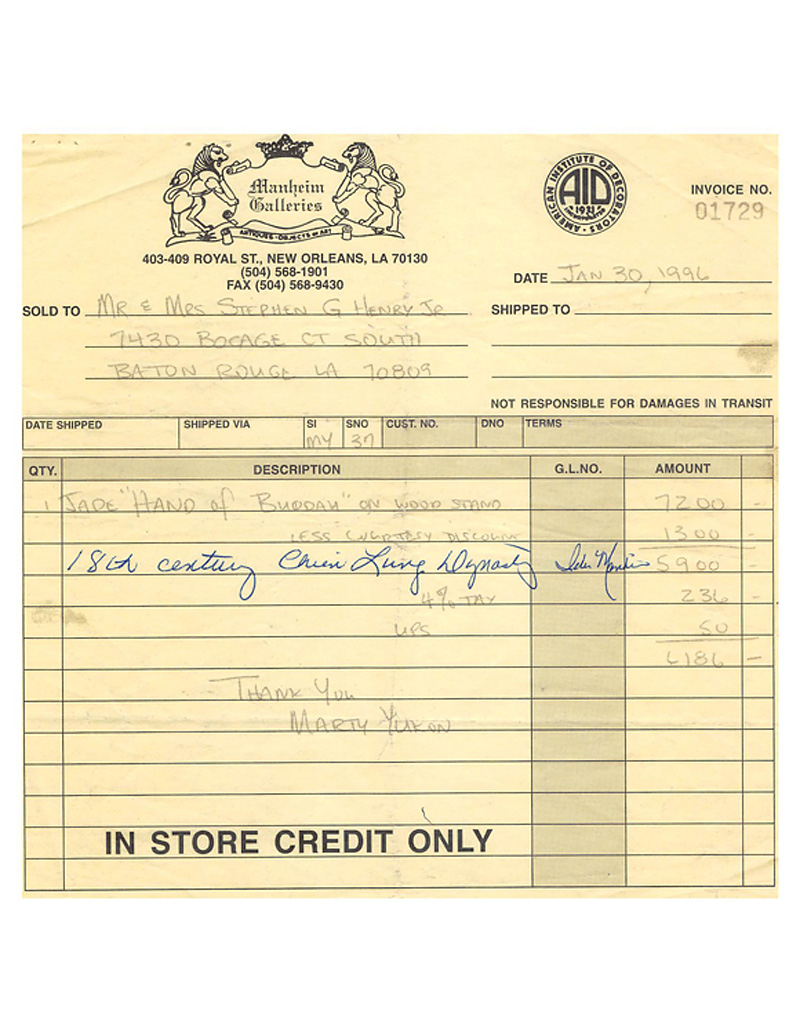 Manheim
Galleries
ANTIQUES - OBJECTS OF ART
403-409 ROYAL ST., NEW ORLEANS, LA 70130
(504) 568-1901
FAX (504) 568-9430
AMERICAN INSTITUTE OF DECORATORS
AID
1931
INVOICE NO.
01729
DATE JAN 30, 1996
SOLD TO MR & MRS STEPHEN G HENRY JR
7430 BOCAGE CT SOUTH
BATON ROUGE LA 70809
SHIPPED TO
NOT RESPONSIBLE FOR DAMAGES IN TRANSIT
DATE SHIPPED SHIPPED VIA SI SNO CUST. NO. DNO TERMS
MY 37
QTY. DESCRIPTION G.L.NO. AMOUNT
1 JADE "HAND of BUDDAH" ON WOOD STAND 7200 -
LESS COURTESY DISCOUNT 1300 -
18th century Chien Lung Dynasty 5900 -
4% TAX 236 -
UPS 50
6186 -
THANK YOU
MARTY YUKON
IN STORE CREDIT ONLY